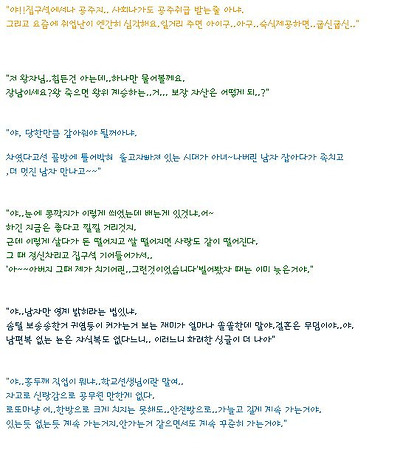 "야!!집구석에서나 공주지.. 사회나가도 공주취급 받는줄 아냐.
그리고 요즘에 취업난이 엔간히 심각해요.일거리 주면 아이구..아구..숙식제공하면..굽신굽신.."
"저 왕자님..힘든건 아는데..하나만 물어볼께요.
장남이세요?왕 죽으면 왕위 계승하는..거... 보장 자산은 어떻게 되..?"
"야, 당한만큼 갚아줘야 될꺼아냐.
차였다고선 골방에 틀어박혀 울고자빠져 있는 시대가 아녀~나버린 남자 잡아다가 족치고
,더 멋진 남자 만나고~~"
"야..눈에 콩깍지가 이렇게 씌었는데 배는게 있것냐.어~
하긴 지금은 좋다고 낄낄 거리것지.
근데 이렇게 살다가 돈 떨어지고 쌀 떨어지면 사랑도 같이 떨어진다.
그 때 정신차리고 집구석 기어들어가서..
'아~~아버지 그때 제가 치기어린..그런것이었습니다'빌어봤자 때는 이미 늦은거야."
"야..남자만 영계 밝히라는 법있냐.
솜털 보송송한거 귀염둥이 커가는거 보는 재미가 얼마나 쏠쏠한데 말야.결혼은 무덤이야..야.
남편복 없는 눈은 자식복도 없다느니.. 이러느니 화려한 싱글이 더 나아"
"야..홍두깨 직업이 뭐냐..학교선생님이란 말여..
자고로 신랑감으로 공무원 만한게 없다.
로또마냥 어..한방으로 크게 치지는 못해도..안전빵으로..가늘고 길게 계속 가는거야.
있는듯 없는듯 계속 가는거지.안가는거 같으면서도 계속 꾸준히 가는거야."